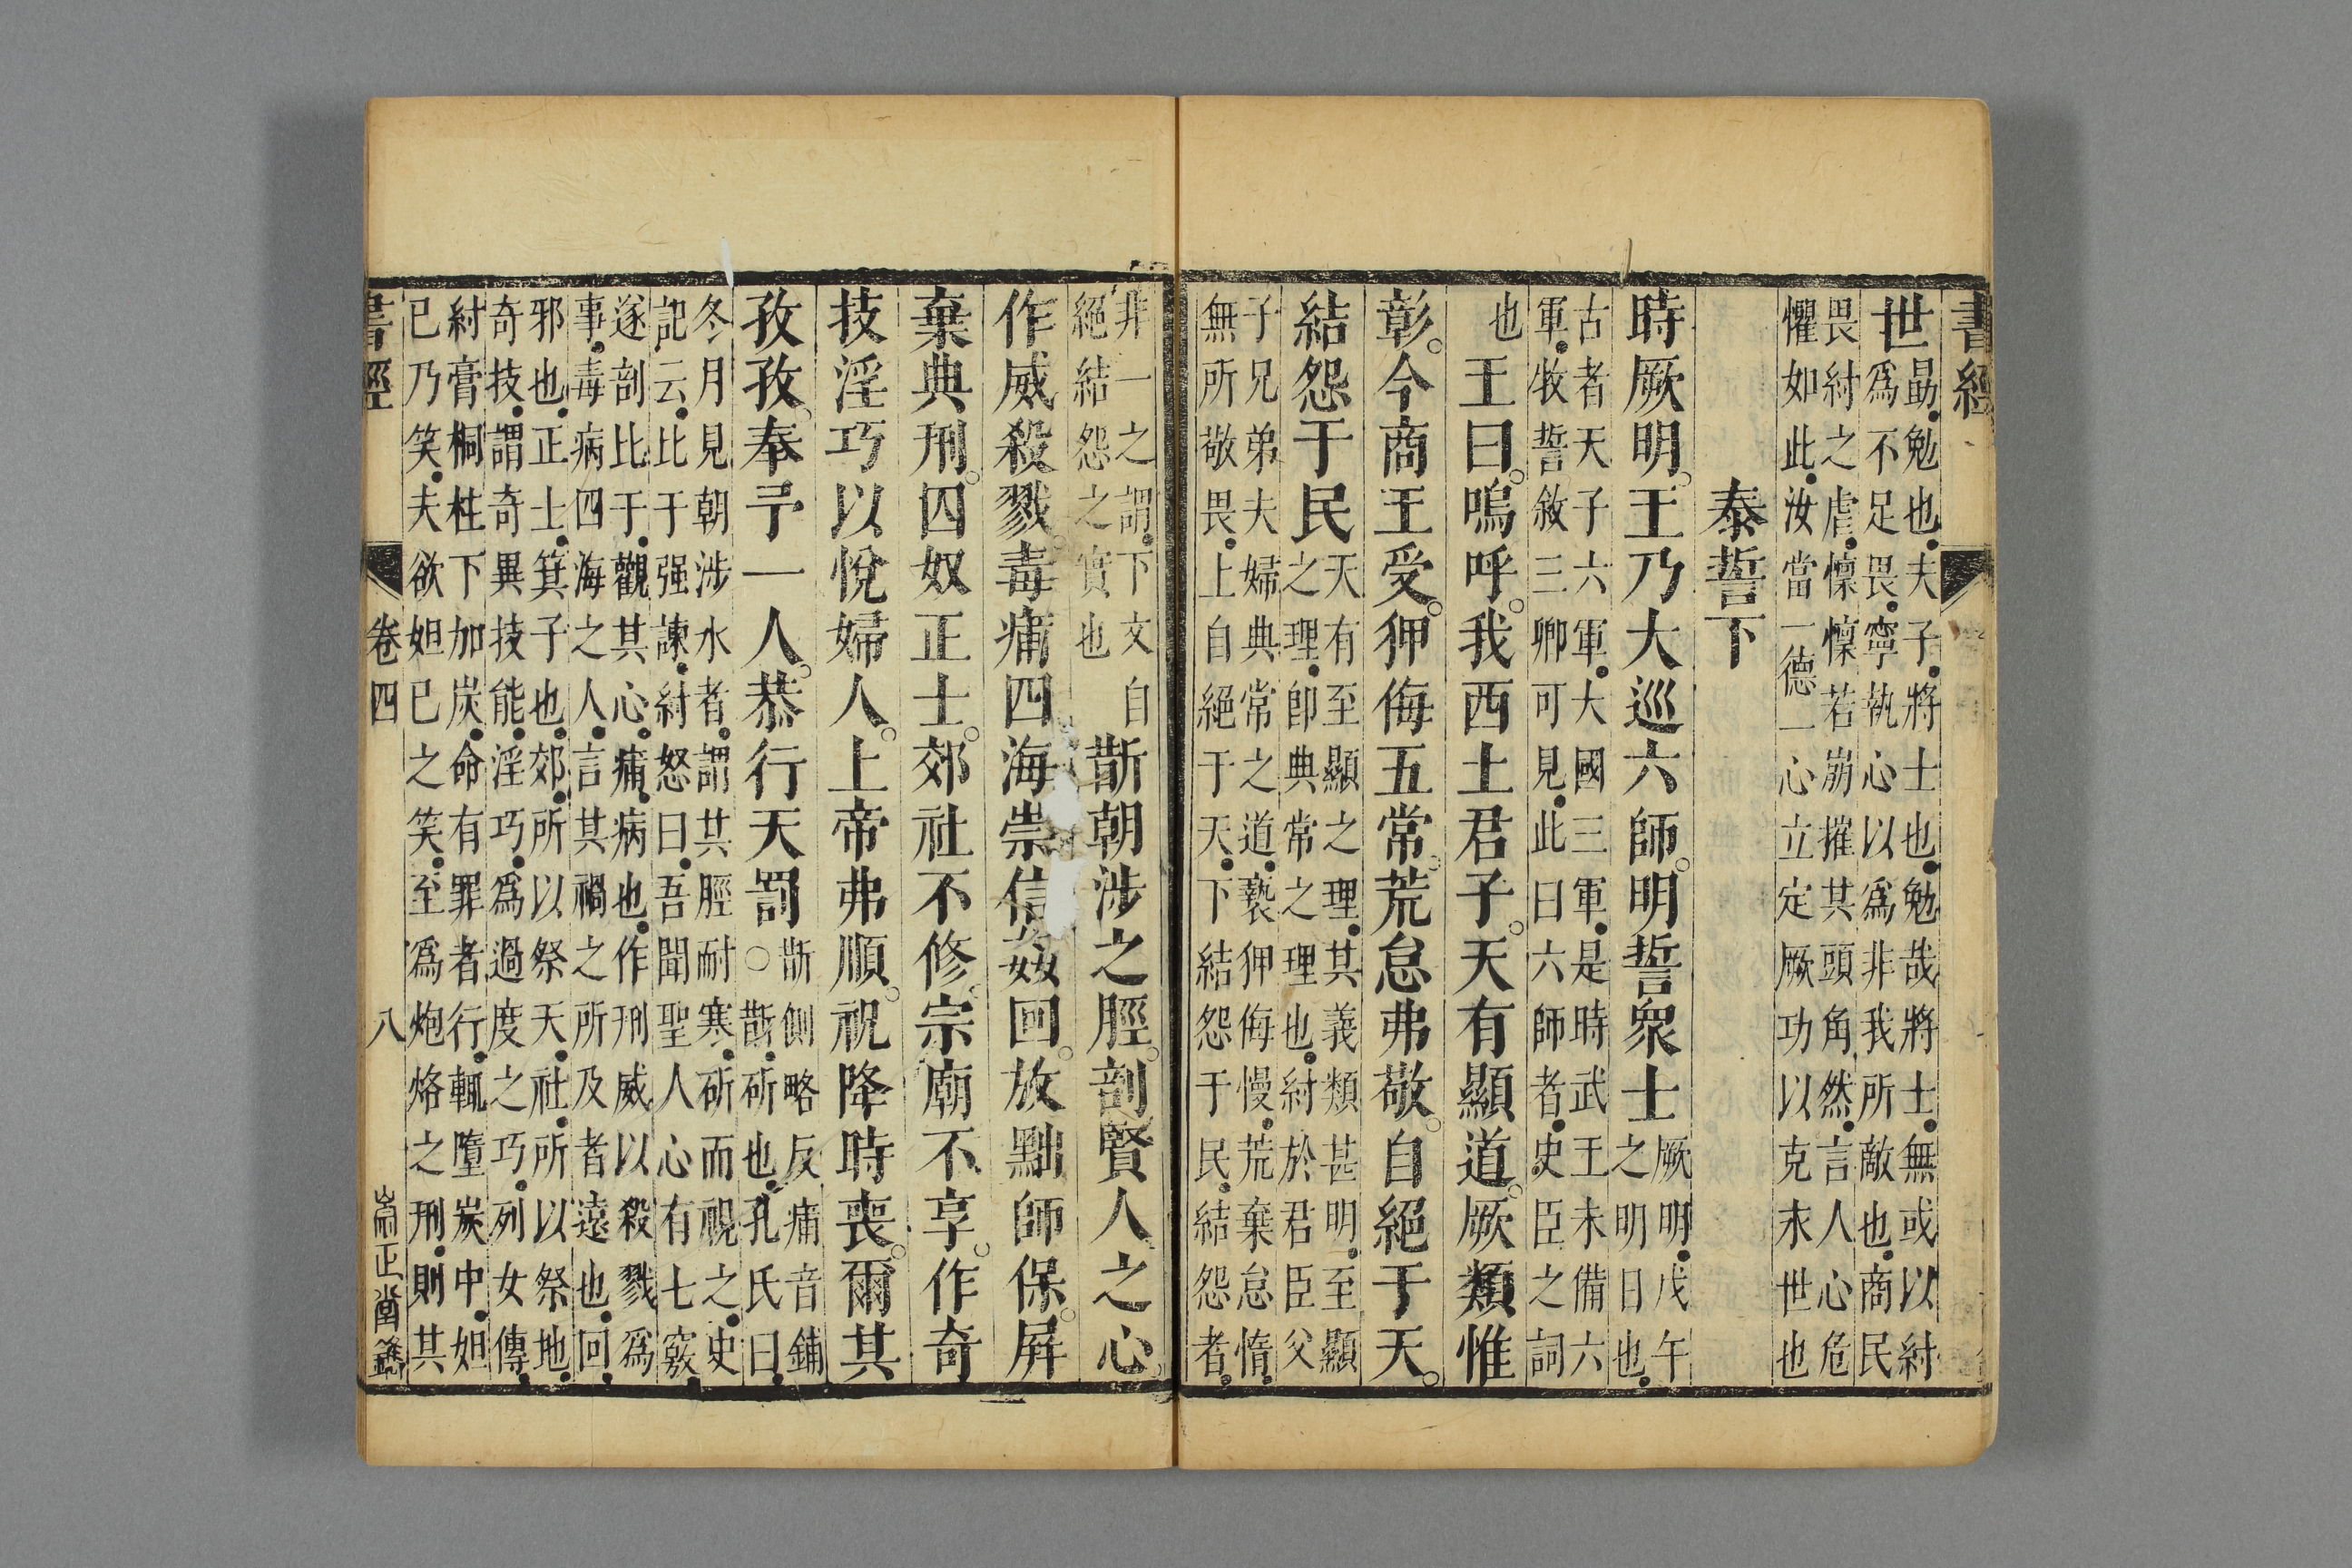 書經
世勗勉也夫子將士也勉哉將士無或以紂
爲不足畏寧執心以爲非我所敵也商民
畏紂之虐懍懍若崩摧其頭角然言人心危
懼如此汝當一德一心立定厥功以克末世也
泰誓下
時厥明王乃大巡六師明誓衆士厥明戊午
之明日也
古者天子六軍大國三軍是時武王未備六
軍牧誓敘三卿可見此曰六師者史臣之詞
也王曰嗚呼我西土君子天有顯道厥類惟
彰今商王受狎侮五常荒怠弗敬自絕于天
結怨于民天有至顯之理其義類甚明至顯
之理卽典常之理也紂於君臣父
子兄弟夫婦典常之道褻狎侮慢荒棄怠惰
無所敬畏上自絕于天下結怨于民結怨者
非一之謂下文自
絕結怨之實也
斮朝涉之脛剖賢人之心
作威殺戮毒痡四海崇信姦回放黜師保屏
棄典刑囚奴正士郊社不修宗廟不享作奇
技淫巧以悅婦人上帝弗順祝降時喪爾其
孜孜奉予一人恭行天罰斮側略反痡音鋪
○斮斫也孔氏曰
冬月見朝涉水者謂其脛耐寒斫而視之史
記云比干强諫紂怒曰吾聞聖人心有七竅
遂剖比干觀其心痡病也作刑威以殺戮爲
事毒病四海之人言其禍之所及者遠也回
邪也正士箕子也郊所以祭天社所以祭地
奇技謂奇異技能淫巧爲過度之巧列女傳
紂膏桐柱下加炭命有罪者行輒墮炭中妲
已乃笑夫欲妲已之笑至爲炮烙之刑則其
書經
卷四
八
崇正堂鐫